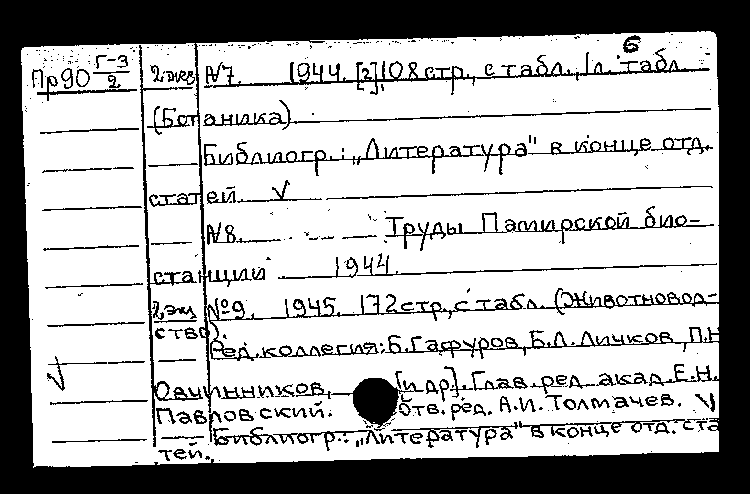 6
Пр90 Г-3/2 2.экз N7. 1944. [2],108 стр., с табл., 1 л. табл.
(Ботаника).
Библиогр.: „Литература" в конце отд.
статей. √
N8. Труды Памирской био-
станции 1944.
2.экз №9. 1945. 172 стр., с табл. (Животновод-
ство).
Ред. коллегия: Б. Гафуров, Б.Л. Личков, П.Н
√ Овчинников, [и др]. Глав. ред. акад. Е.Н.
Павловский. Отв. ред. А.И. Толмачев. √
Библиогр.: „Литература" в конце отд. ста
тей.